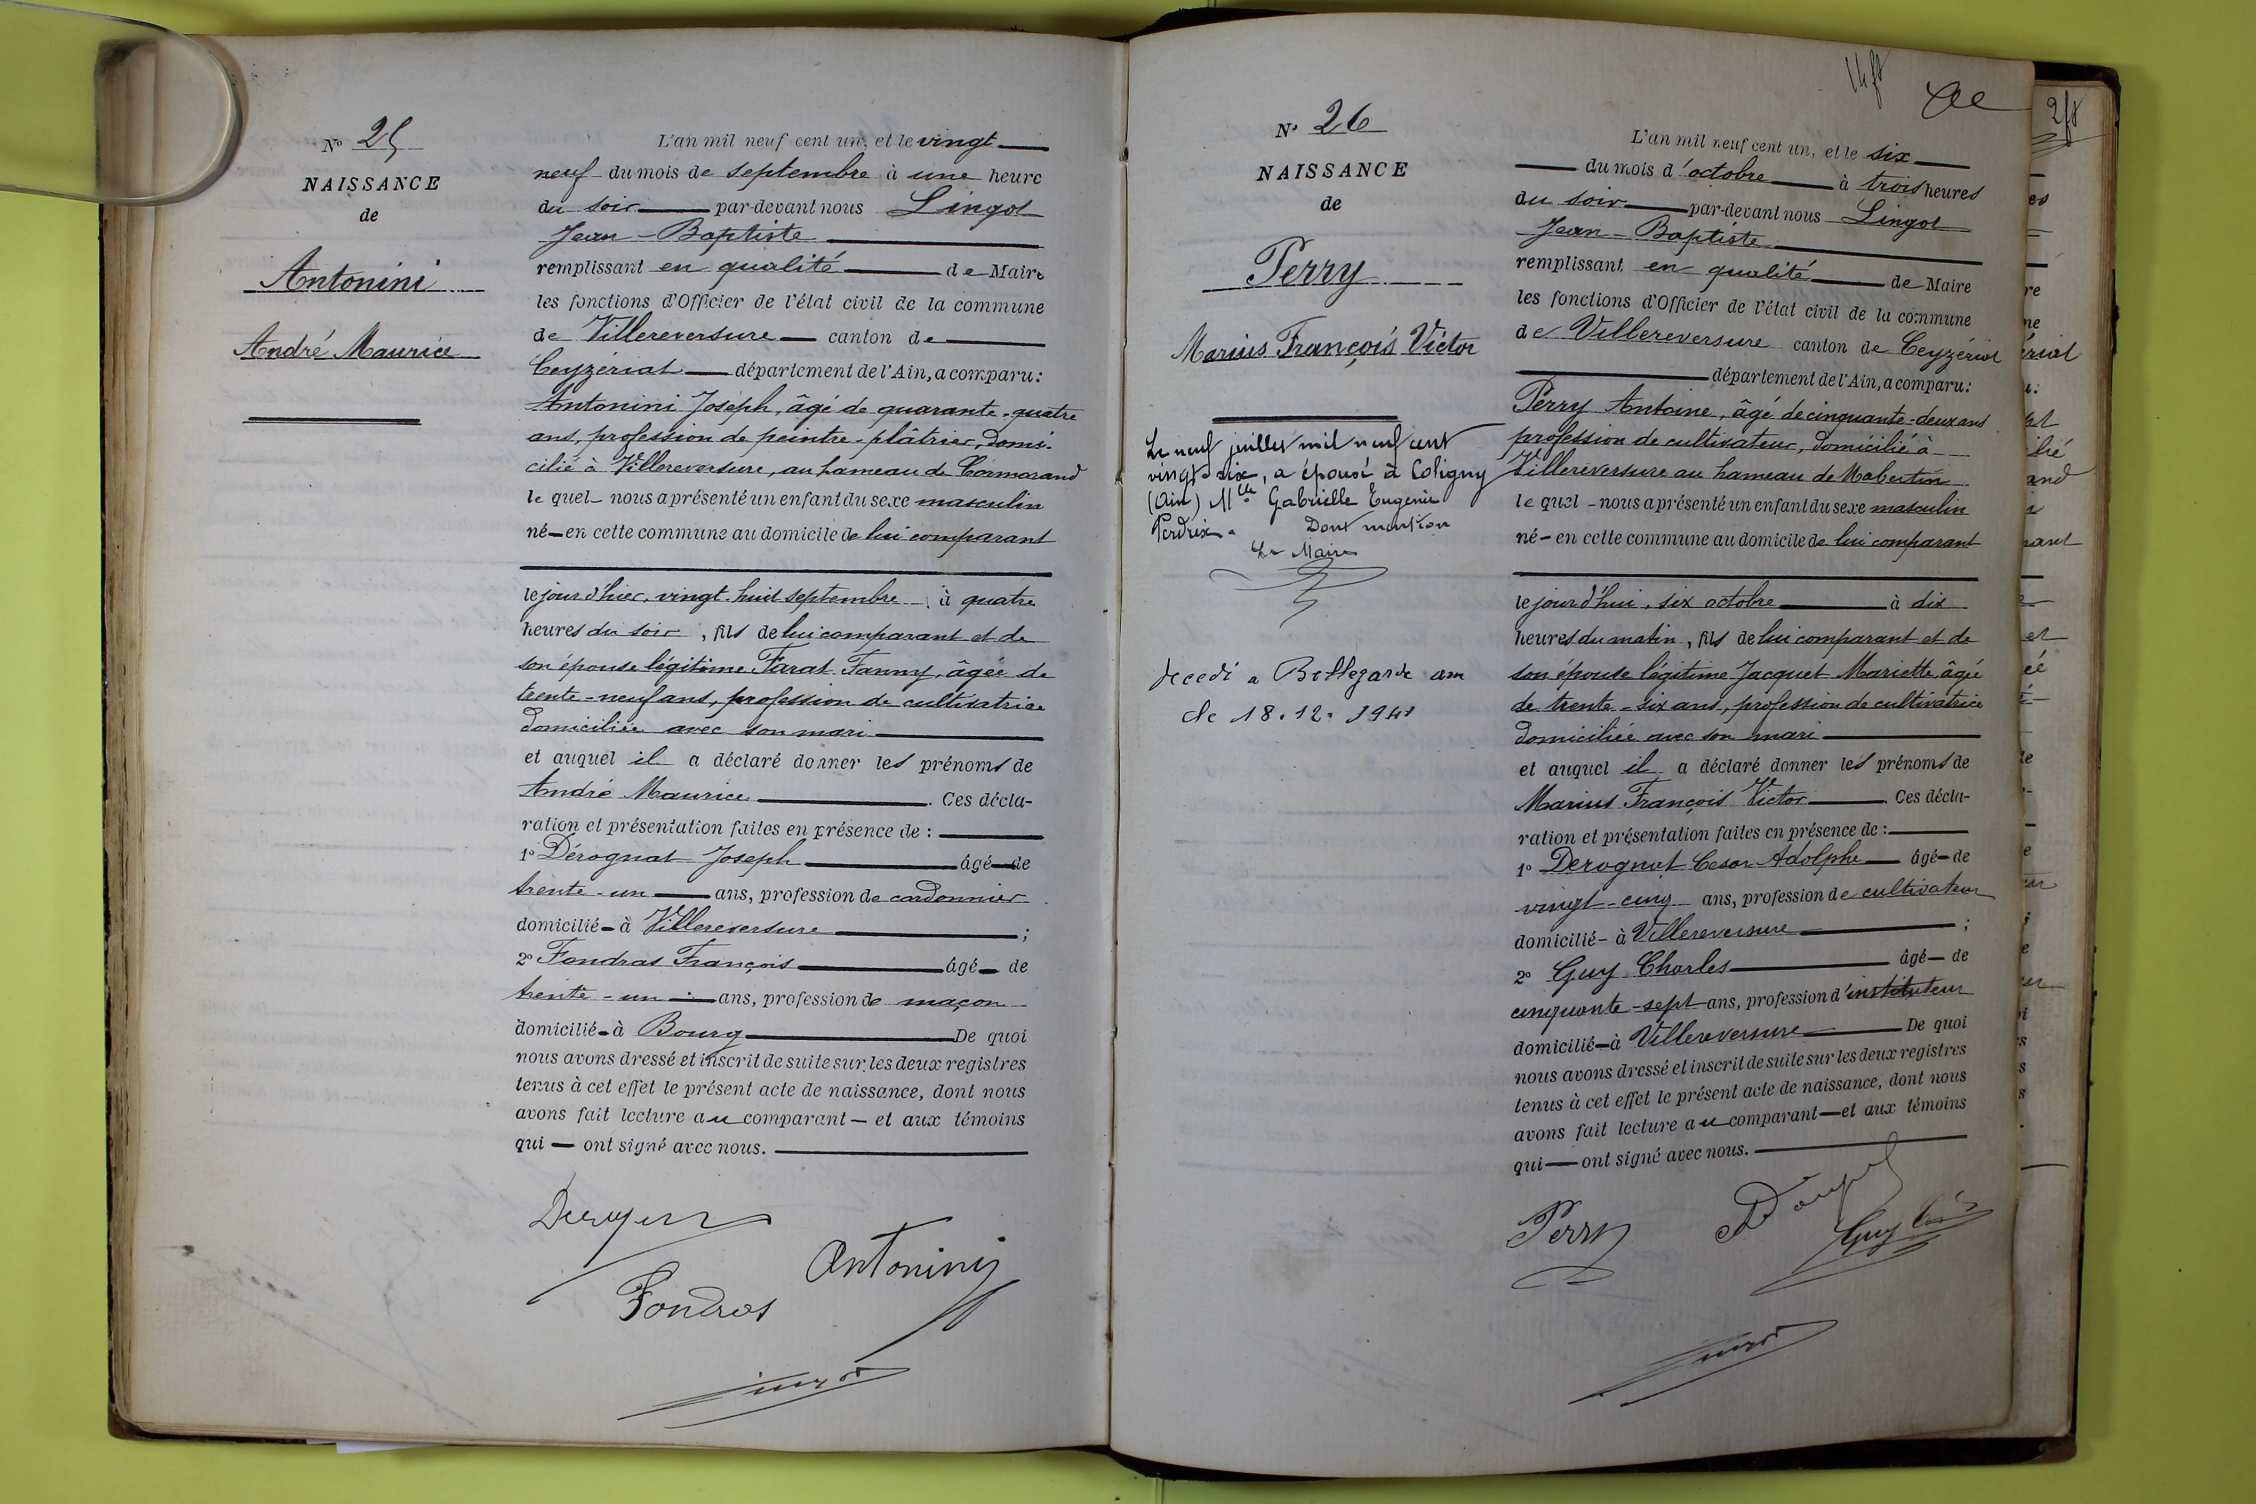 Nº 25
NAISSANCE
de
Antonini
André Maurice
L'an mil neuf cent un, et le vingt
neuf du mois de septembre à une heure
du soir par-devant nous Lingot
Jean-Baptiste
remplissant en qualité de Maire
les fonctions d'Officier de l'état civil de la commune
de Villereversure canton de
Ceyzériat département de l'Ain, a comparu:
Antonini Joseph, âgé de quarante-quatre
ans, profession de peintre-plâtrier, domi-
cilié à Villereversure, au hameau de Cormorand
lequel nous a présenté un enfant du sexe masculin
né en cette commune au domicile de lui comparant
le jour d'hier, vingt-huit septembre à quatre
heures du soir, fils de lui comparant et de
son épouse légitime Farat Fanny, âgée de
trente-neuf ans, profession de cultivatrice
domiciliée avec son mari
et auquel il a déclaré donner les prénoms de
André Maurice. Ces décla-
ration et présentation faites en présence de :
1º Dérognat Joseph âgé de
trente-un ans, profession de cordonnier
domicilié à Villereversure ;
2º Fondras François âgé de
trente-un ans, profession de maçon
domicilié à Bourg De quoi
nous avons dressé et inscrit de suite sur les deux registres
tenus à cet effet le présent acte de naissance, dont nous
avons fait lecture au comparant et aux témoins
qui ont signé avec nous.
Antonini
Fondras
14 f8
2f8
Nº 26
NAISSANCE
de
Perry
Marius François Victor
Le neuf juillet mil neuf cent
vingt-six, a épousé à Coligny
(Ain) Mlle Gabrielle Eugénie
Perdrix. Dont mention
Le Maire
decedé a Bellegarde ain
le 18.12.1941
L'an mil neuf cent un, et le six
du mois d'octobre à trois heures
du soir par-devant nous Lingot
Jean-Baptiste
remplissant en qualité de Maire
les fonctions d'Officier de l'état civil de la commune
de Villereversure canton de Ceyzériat
département de l'Ain, a comparu:
Perry Antoine, âgé de cinquante-deux ans
profession de cultivateur, domicilié à
Villereversure au hameau de Nobertin
lequel nous a présenté un enfant du sexe masculin
né en cette commune au domicile de lui comparant
le jour d'hui, six octobre à dix
heures du matin, fils de lui comparant et de
son épouse légitime Jacquet Mariette, âgé
de trente-six ans, profession de cultivatrice
domiciliée avec son mari
et auquel il a déclaré donner les prénoms de
Marius François Victor. Ces décla-
ration et présentation faites en présence de :
1º Derognat Cesar Adolphe âgé de
vingt-cinq ans, profession de cultivateur
domicilié à Villereversure ;
2º Guy Charles âgé de
cinquante-sept ans, profession d'instituteur
domicilié à Villereversure De quoi
nous avons dressé et inscrit de suite sur les deux registres
tenus à cet effet le présent acte de naissance, dont nous
avons fait lecture au comparant et aux témoins
qui ont signé avec nous.
Perry
Guy